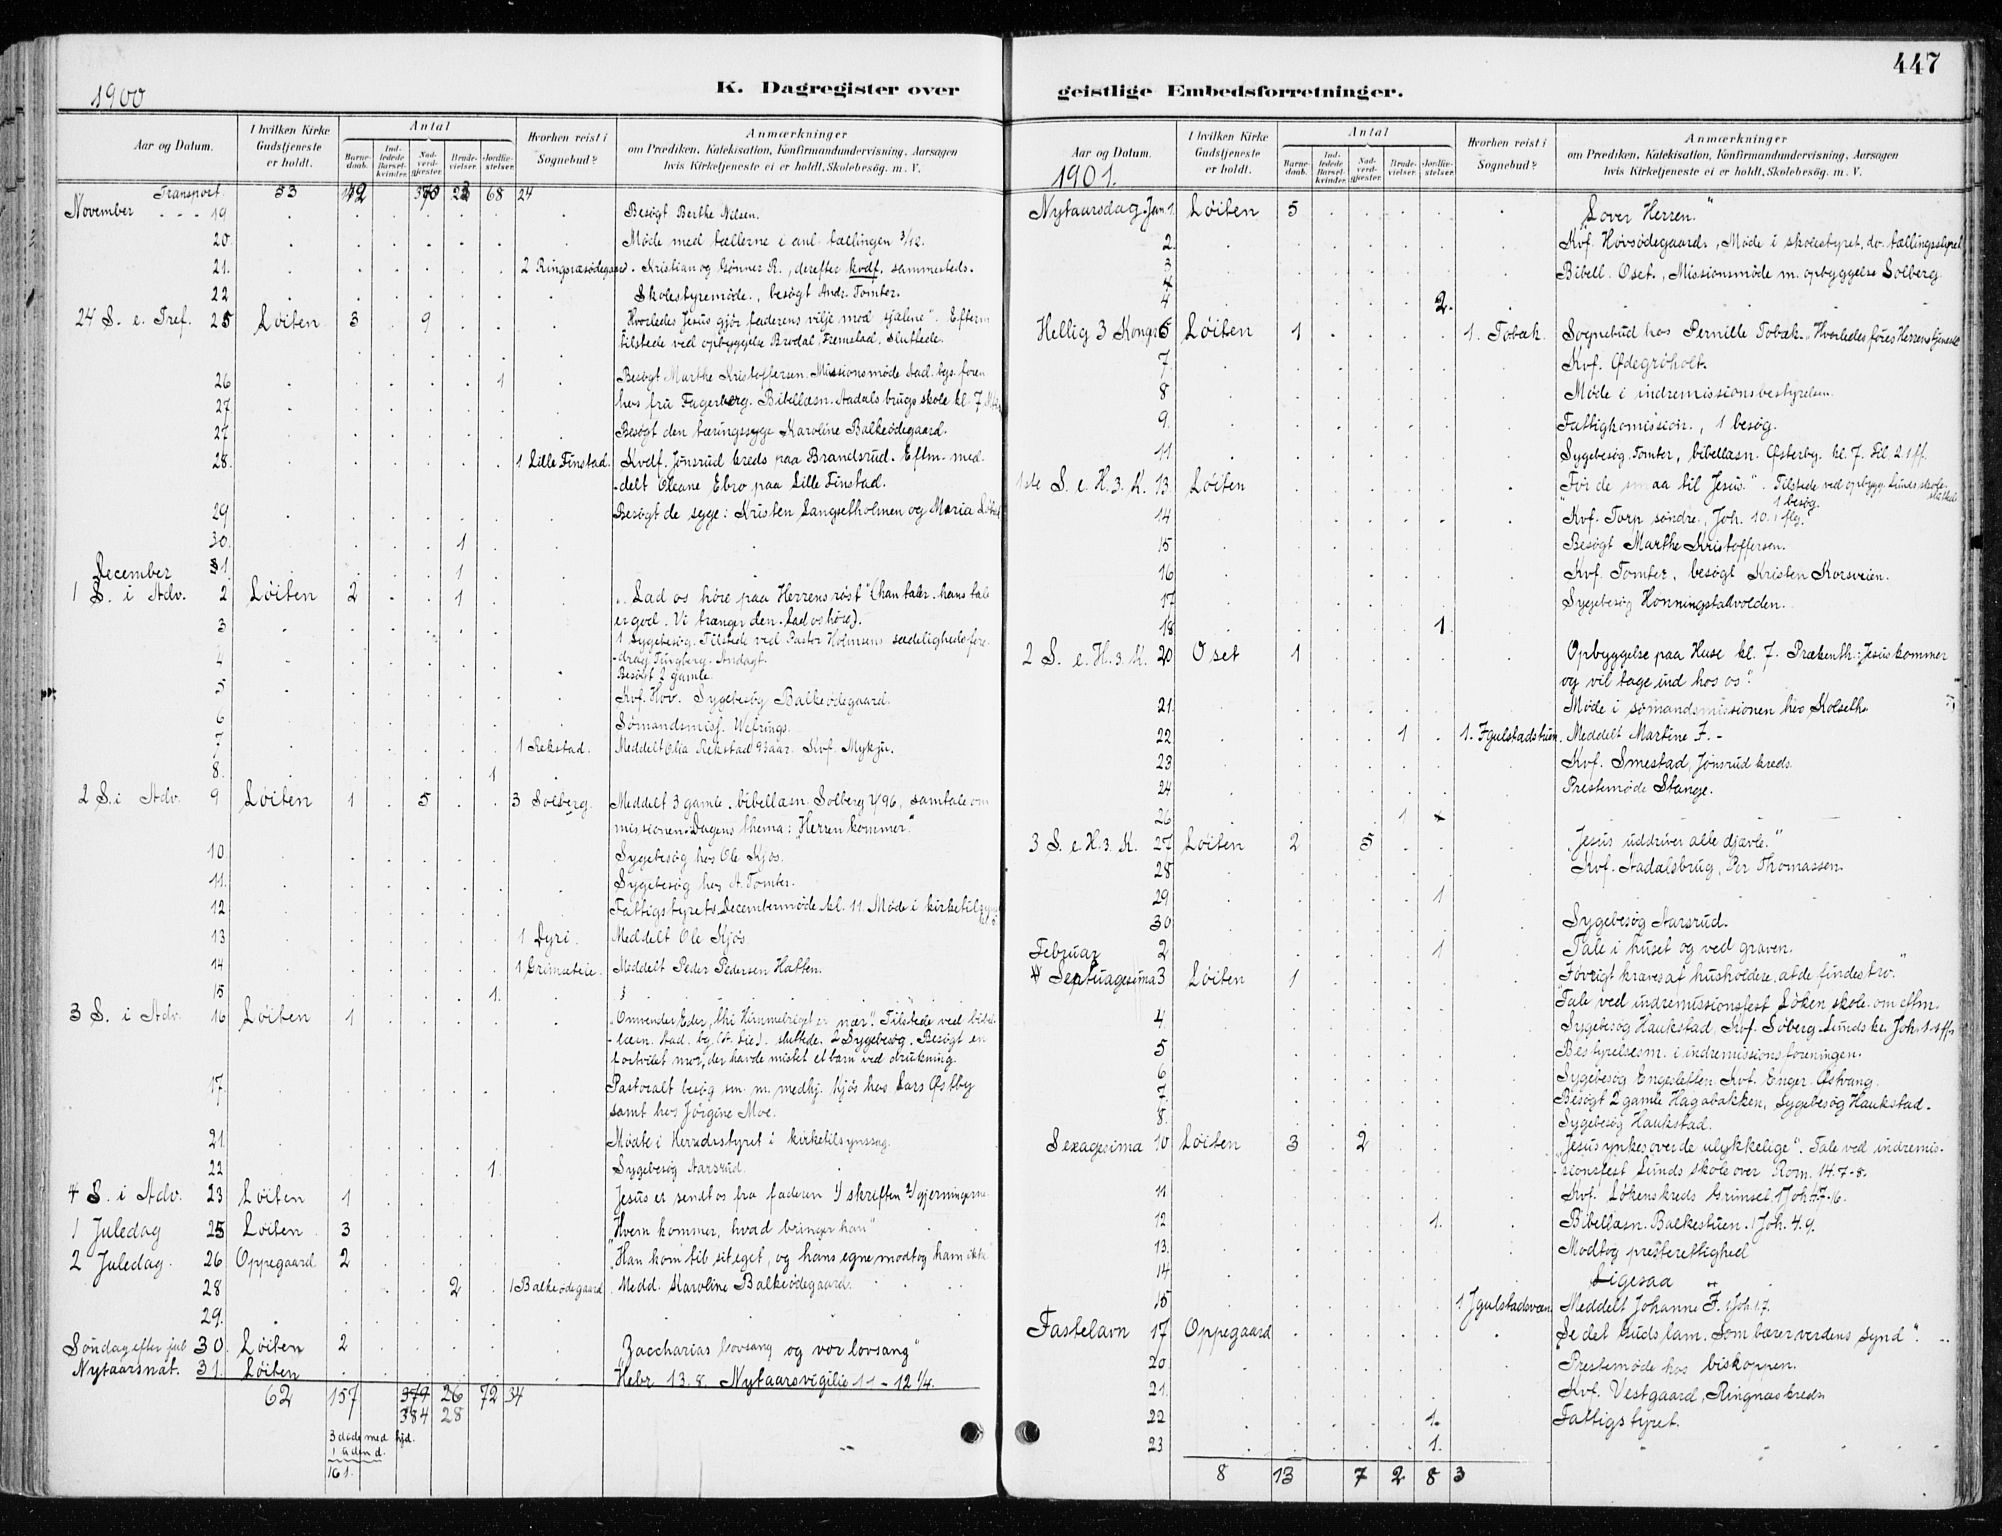 447
1900
K. Dagregister over
geistlige Embedsforretninger.
Aar og Datum.
I hvilken Kirke Gudstjeneste er holdt.
Antal
Barne-daab.
Ind-ledede Barsel-kvinder.
Nad-verd-gjæster.
Brude-vielser.
Jordfæ-stelser.
Hvorhen reist i Sognebud?
Anmærkninger
om Prædiken, Katekisation, Konfirmandundervisning, Aarsagen
hvis Kirketjeneste ei er holdt, Skolebesøg. m. V.
Transport. 53 68 24
November 19 Besøgt Berthe Nilsen.
20. Møde med tællerne i anl. tællingen 3/12.
21. 2 Ringnæsødegaard. Kristian og Gønner R., derefter kvdf. sammesteds.
22 Skolestyremøde., besøgt Andr. Tomter.
24 S. e. Tref. 25 Løiten 3 9 "Hvorledes Jesus gjør faderens vilje mod sjælene". Efterm
tilstede ved opbyggelse Brodal, Fremstad, Sluttede.
26 1 Besøgt Marthe Kristoffersen. Missionsmøde Aad. bgs. foren
27 hos fru Fagerberg. Bibellæsn. Aadals brugs skole kl. 7
27 Besøgt den tæringssyge Karoline Balkeødegaard.
28. 1 Lille Finstad. Kvdf. Jønsrud kreds paa Brandsrud. Eftm. med
-delt Oleane Ebro paa Lille Finstad.
29 Besøgt de syge: Kristen Langsetholmen og Maria
30. 1
December 1 1
1 S. i Adv. 2 Løiten 2 1 "Lad os høre paa Herrens røst" (han taler. hans tale
er god. Vi trænger den. Lad os høre).
3 1 Sygebesøg. Tilstede ved Pastor Holmsens sædelighedsfore
4 -drag Tingberg. Andagt.
Besøgt 2 gamle.
5 Kvf. Hov. Sygebesøg Balkeødegaard.
6 Sømandsmisj. Wefrings.
7 1 Rekstad. Meddelt Olia Rekstad 93aar. Kvf. Mykju.
8. 1
2 S. i Adv. 9 Løiten 1 5 3 Solberg. Meddelt 3 gamle. bibellæsn. Solberg 1/96, samtale om
missionen. Dagens thema: "Herren kommer."
10. Sygebesøg hos Ole Kjøs.
11. Sygebesøg hos A. Tomter.
12 Fattigstyrets Decembermøde kl. 11. Møde i kirketilsyn
13 1 Dyri. Meddelt Ole Kjøs
14 1 Grimseteie. Meddelt Peder Pedersen Hatten.
15 1.
3 S. i Adv. 16 Løiten 1 "Omvender Eder, thi Himmelriget er nær". Tilstede ved bibel
-læsn. Aad. bg. sluttede. 2 Sygebesøg. Besøgt en
fortvilet mor, der havde mistet et barn ved drukning.
17. Pastoralt besøg sm. m. medhj. Kjøs hos Lars Østby
samt hos Jørgine Moe.
21. Møde i Herredsstyret i kirketilsynssag.
22 1. Sygebesøg Aarsrud.
4 S. i Adv. 23 Løiten 1 Jesus er sendt os fra faderen 1/ skriften 2/ gjerningerne
1 Juledag 25 Løiten 3 "Hvem kommer, hvad bringer han"
2 Juledag. 26 Oppegaard 2 "Han kom til sit eget, og hans egne modtog ham ikke"
28 2 1 Balkeødegaard. Medd. Karoline Balkeødegaard.
29.
Søndag efter jul 30. Løiten 2 "Zaccharias lovsang og vor lovsang"
Nytaarsnat. 31. Løiten Hebr 13.8. Nytaarsvigilie 11 - 12 1/4.
62 157 379 26 72 34
384 28
3 døde med hjd.
161.
Aar og Datum.
1901.
I hvilken Kirke Gudstjeneste er holdt.
Antal
Barne-daab.
Ind-ledede Barsel-kvinder.
Nad-verd-gjæster.
Brude-vielser.
Jordfæ-stelser.
Hvorhen reist i Sognebud?
Anmærkninger
om Prædiken, Katekisation, Konfirmandundervisning, Aarsagen
hvis Kirketjeneste ei er holdt, Skolebesøg. m. V.
Nytaarsdag. Jan. 1. Løiten 5 "Lover Herren."
2. Kvf. Høvsødegaard, Møde i skolestyret, do. tællingsstyret
3 Bibell. Oset., Missionsmøde m. opbyggelse Solberg.
4 2.
Hellig 3 Konger 6 Løiten 1 1. Tobæk. Sognebud hos Pernille Tobæk. "Hvorledes føres Herrens tjeneste
7. Kvf. Ødegrøholt.
8 Møde i indremissionsbestyrelsen.
9. Fattigkomission., 1 besøg.
11. Sygebesøg. Tomter, bibellæsn. Østerby. kl. 7. Fil 2.1 ff.
1ste S. e. H. 3. K. 13 Løiten "Før de smaa til Jesus." Tilstede ved opbygg. Lunds skole-
sluttede
1 besøg.
14 Kvf. Torp søndre, Joh. 10.1 flg.
15 Besøgt Marthe Kristoffersen.
16 Kvf. Tomter, besøgt Kristen Korsveien.
17 Sygebesøg Honningstadvolden.
18. 1.
2 S. e. H. 3. K. 20 Oset 1 Opbyggelse paa Huse kl. 7. Prækenth.: Jesus kommer
og vil tage ind hos os".
21. Møde i sømandsmissionen hos Kolseth.
22 1 1. Fgulstadstuen. Meddelt Martine F. -
23 Kvf. Smestad, Jønsrud kreds.
24 Prestemøde Stange.
26 1
3 S. e. H. 3. K. 27 Løiten 2 5 "Jesus uddriver alle djævle."
28 Kvf. Aadalsbrug, Per Thomassen.
29 1
30 Sygebesøg Aarsrud.
Februar 2 1 Tale i huset og ved graven.
Septuagesima 3 Løiten 1 "Føvrigt kræves af husholdere, at de findes tro."
Tale ved indremissionsfest Løken skole om eftm.
4. Sygebesøg Haukstad, Kvf. Søberg Lunds kr. Joh. 1.1 ff.
5 Bestyrelsesm. i indremissionsforeningen.
6 Sygebesøg Engesletten. Kvf. Enger Østvang.
7. Besøgt 2 gamle Hagabakken, Sygebesøg Haukstad.
8. Sygebesøg Haukstad.
Sexagesima 10 Løiten 3 2 "Jesus ynkes over de ulykkelige". Tale ved indremis-
-sionsfest Lunds skole over Rom. 14.7-8.
11 Kvf. Løkenskreds Grimset, 1 Joh. 4.7-16.
12 1. Bibellæsn. Balkestuen. 1 Joh. 4.9.
13. Modtog presterettighed
14. Ligesaa
15 1 Jgulstadsveen. Meddelt Johanne F. 1 Joh. 1.7.
Fastelavn 17 Oppegaard "Se det Guds lam, som bærer verdens synd".
20 Prestemøde hos biskoppen.
21. Kvf. Vestgaard, Ringnæs kreds
22 1. Fattigstyret.
23 1.
8 13 7 2 8 3